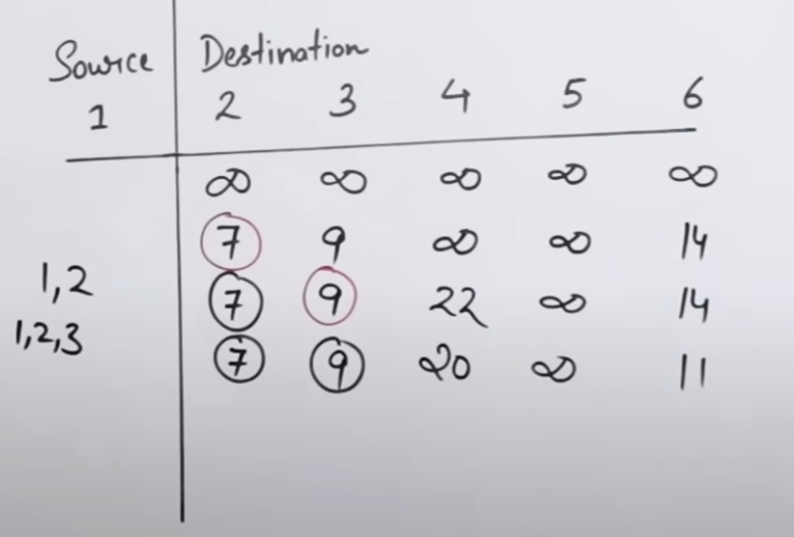 Source Destination
1 2 3 4 5 6
∞ ∞ ∞ ∞ ∞
7 9 ∞ ∞ 14
1,2 7 9 22 ∞ 14
1,2,3 7 9 20 ∞ 11